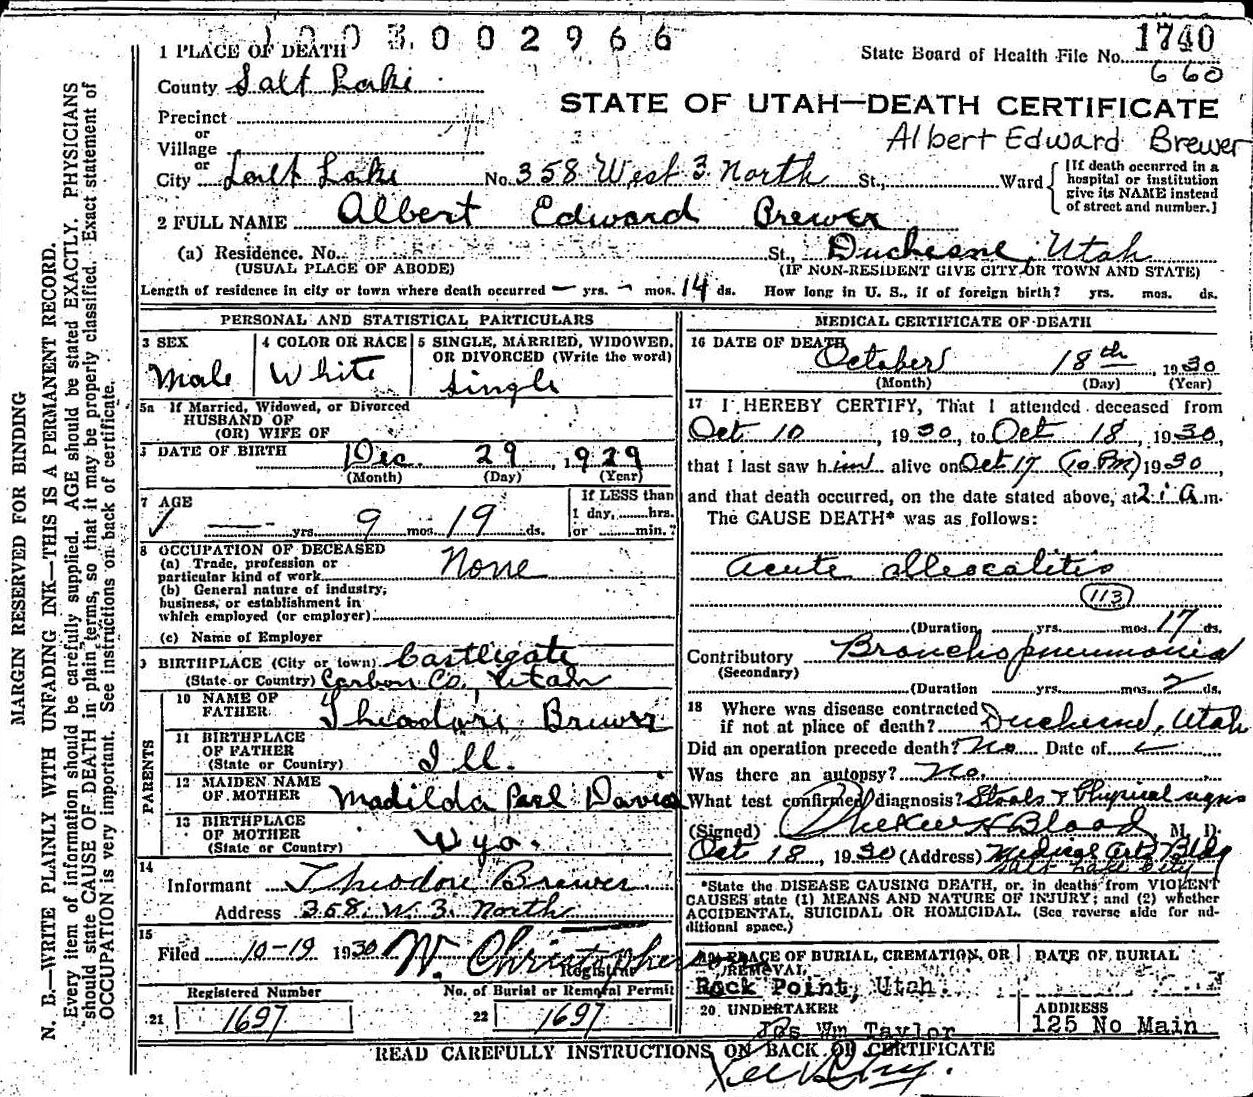 1003002966
1740
State Board of Health File No.
660
1 PLACE OF DEATH
County Salt Lake
STATE OF UTAH—DEATH CERTIFICATE
Precinct
or
Village
Albert Edward Brewer
or
City Salt Lake No. 358 West 3 North St., Ward
[If death occurred in a
hospital or institution
give its NAME instead
of street and number.]
2 FULL NAME Albert Edward Brewer
(a) Residence. No. St., Duchesne, Utah
(USUAL PLACE OF ABODE) (IF NON-RESIDENT GIVE CITY OR TOWN AND STATE)
Length of residence in city or town where death occurred — yrs. — mos. 14 ds. How long in U. S., if of foreign birth? yrs. mos. ds.
PERSONAL AND STATISTICAL PARTICULARS
3 SEX
Male
4 COLOR OR RACE
White
5 SINGLE, MARRIED, WIDOWED,
OR DIVORCED (Write the word)
Single
5a If Married, Widowed, or Divorced
HUSBAND OF
(OR) WIFE OF
DATE OF BIRTH Dec. 29, 1929
(Month) (Day) (Year)
7 AGE
— yrs. 9 mos. 19 ds.
If LESS than
1 day, hrs.
or min.?
8 OCCUPATION OF DECEASED
(a) Trade, profession or
particular kind of work None
(b) General nature of industry,
business, or establishment in
which employed (or employer)
(c) Name of Employer
9 BIRTHPLACE (City or town) Castlegate
(State or Country) Carbon Co, Utah
PARENTS
10 NAME OF
FATHER Theodore Brewer
11 BIRTHPLACE
OF FATHER
(State or Country) Ill.
12 MAIDEN NAME
OF MOTHER Madilda Perl Davis
13 BIRTHPLACE
OF MOTHER
(State or Country) Wyo.
14
Informant Theodore Brewer
Address 358 W. 3 North
15
Filed 10-19 1930 W. Christopherson
Registrar
Registered Number
21 1697
No. of Burial or Removal Permit
22 1697
MEDICAL CERTIFICATE OF DEATH
16 DATE OF DEATH
October 18th, 1930
(Month) (Day) (Year)
17 I HEREBY CERTIFY, That I attended deceased from
Oct 10, 1930, to Oct 18, 1930,
that I last saw him alive on Oct 17 (10 PM) 1930,
and that death occurred, on the date stated above, at 2 a.m.
The CAUSE DEATH* was as follows:
Acute Illeocalitis
113
(Duration yrs. mos. 17 ds.
Contributory Bronchopneumonia
(Secondary)
(Duration yrs. mos. 2 ds.
18 Where was disease contracted
if not at place of death? Duchesne, Utah
Did an operation precede death? No Date of
Was there an autopsy? No.
What test confirmed diagnosis? Stools & Physical signs
(Signed) H Blood, M. D.
Oct 18, 1930 (Address) Medical Arts Bldg
Salt Lake City
*State the DISEASE CAUSING DEATH, or, in deaths from VIOLENT
CAUSES state (1) MEANS AND NATURE OF INJURY; and (2) whether
ACCIDENTAL, SUICIDAL OR HOMICIDAL. (See reverse side for ad-
ditional space.)
19 PLACE OF BURIAL, CREMATION, OR
REMOVAL
Rock Point, Utah.
DATE OF BURIAL
20 UNDERTAKER
Jos Wm Taylor
ADDRESS
125 No Main
READ CAREFULLY INSTRUCTIONS ON BACK OF CERTIFICATE
MARGIN RESERVED FOR BINDING
N. B.—WRITE PLAINLY WITH UNFADING INK—THIS IS A PERMANENT RECORD.
Every item of information should be carefully supplied. AGE should be stated EXACTLY. PHYSICIANS
should state CAUSE OF DEATH in plain terms, so that it may be properly classified. Exact statement of
OCCUPATION is very important. See instructions on back of certificate.